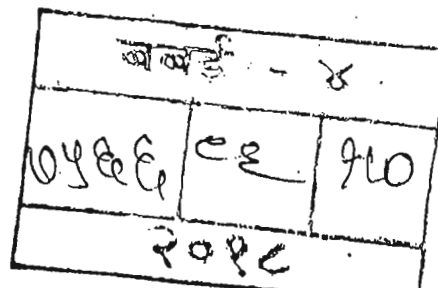 बबई - ४
७५६६ ८६ १८०
२०१८